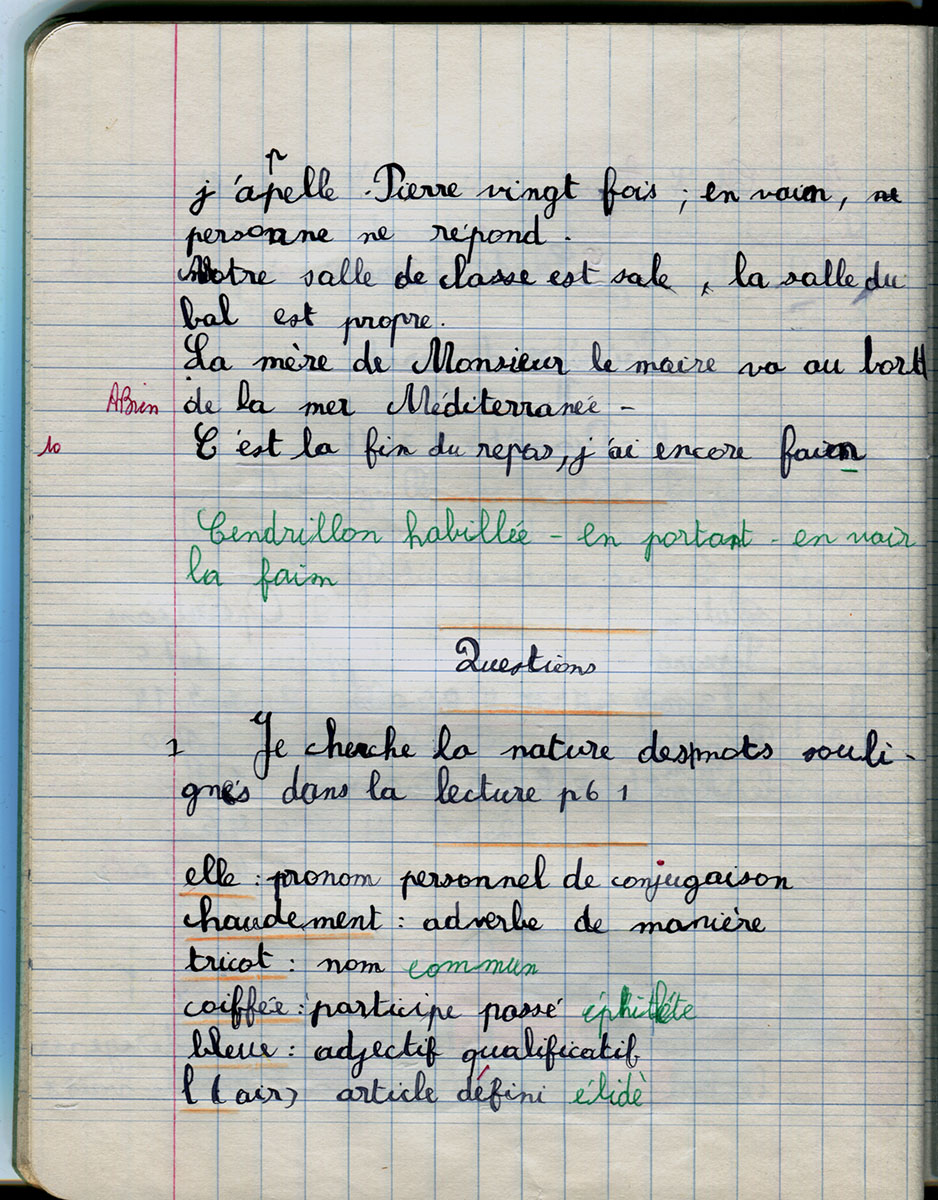 p
j'apelle Pierre vingt fois ; en vain, ne
personne ne répond.
Notre salle de classe est sale, la salle du
bal est propre.
La mère de Monsieur le maire va au bord
ABien de la mer Méditerranée -
10 C'est la fin du repas, j'ai encore faim
Cendrillon habillée - en portant - en voir
la faim
Questions
1 Je cherche la nature des mots souli-
gnés dans la lecture p 61
elle : pronom personnel de conjugaison
chaudement : adverbe de manière
tricot : nom commun
coiffée : participe passé éphitète
bleue : adjectif qualificatif
l (air) article défini élidè